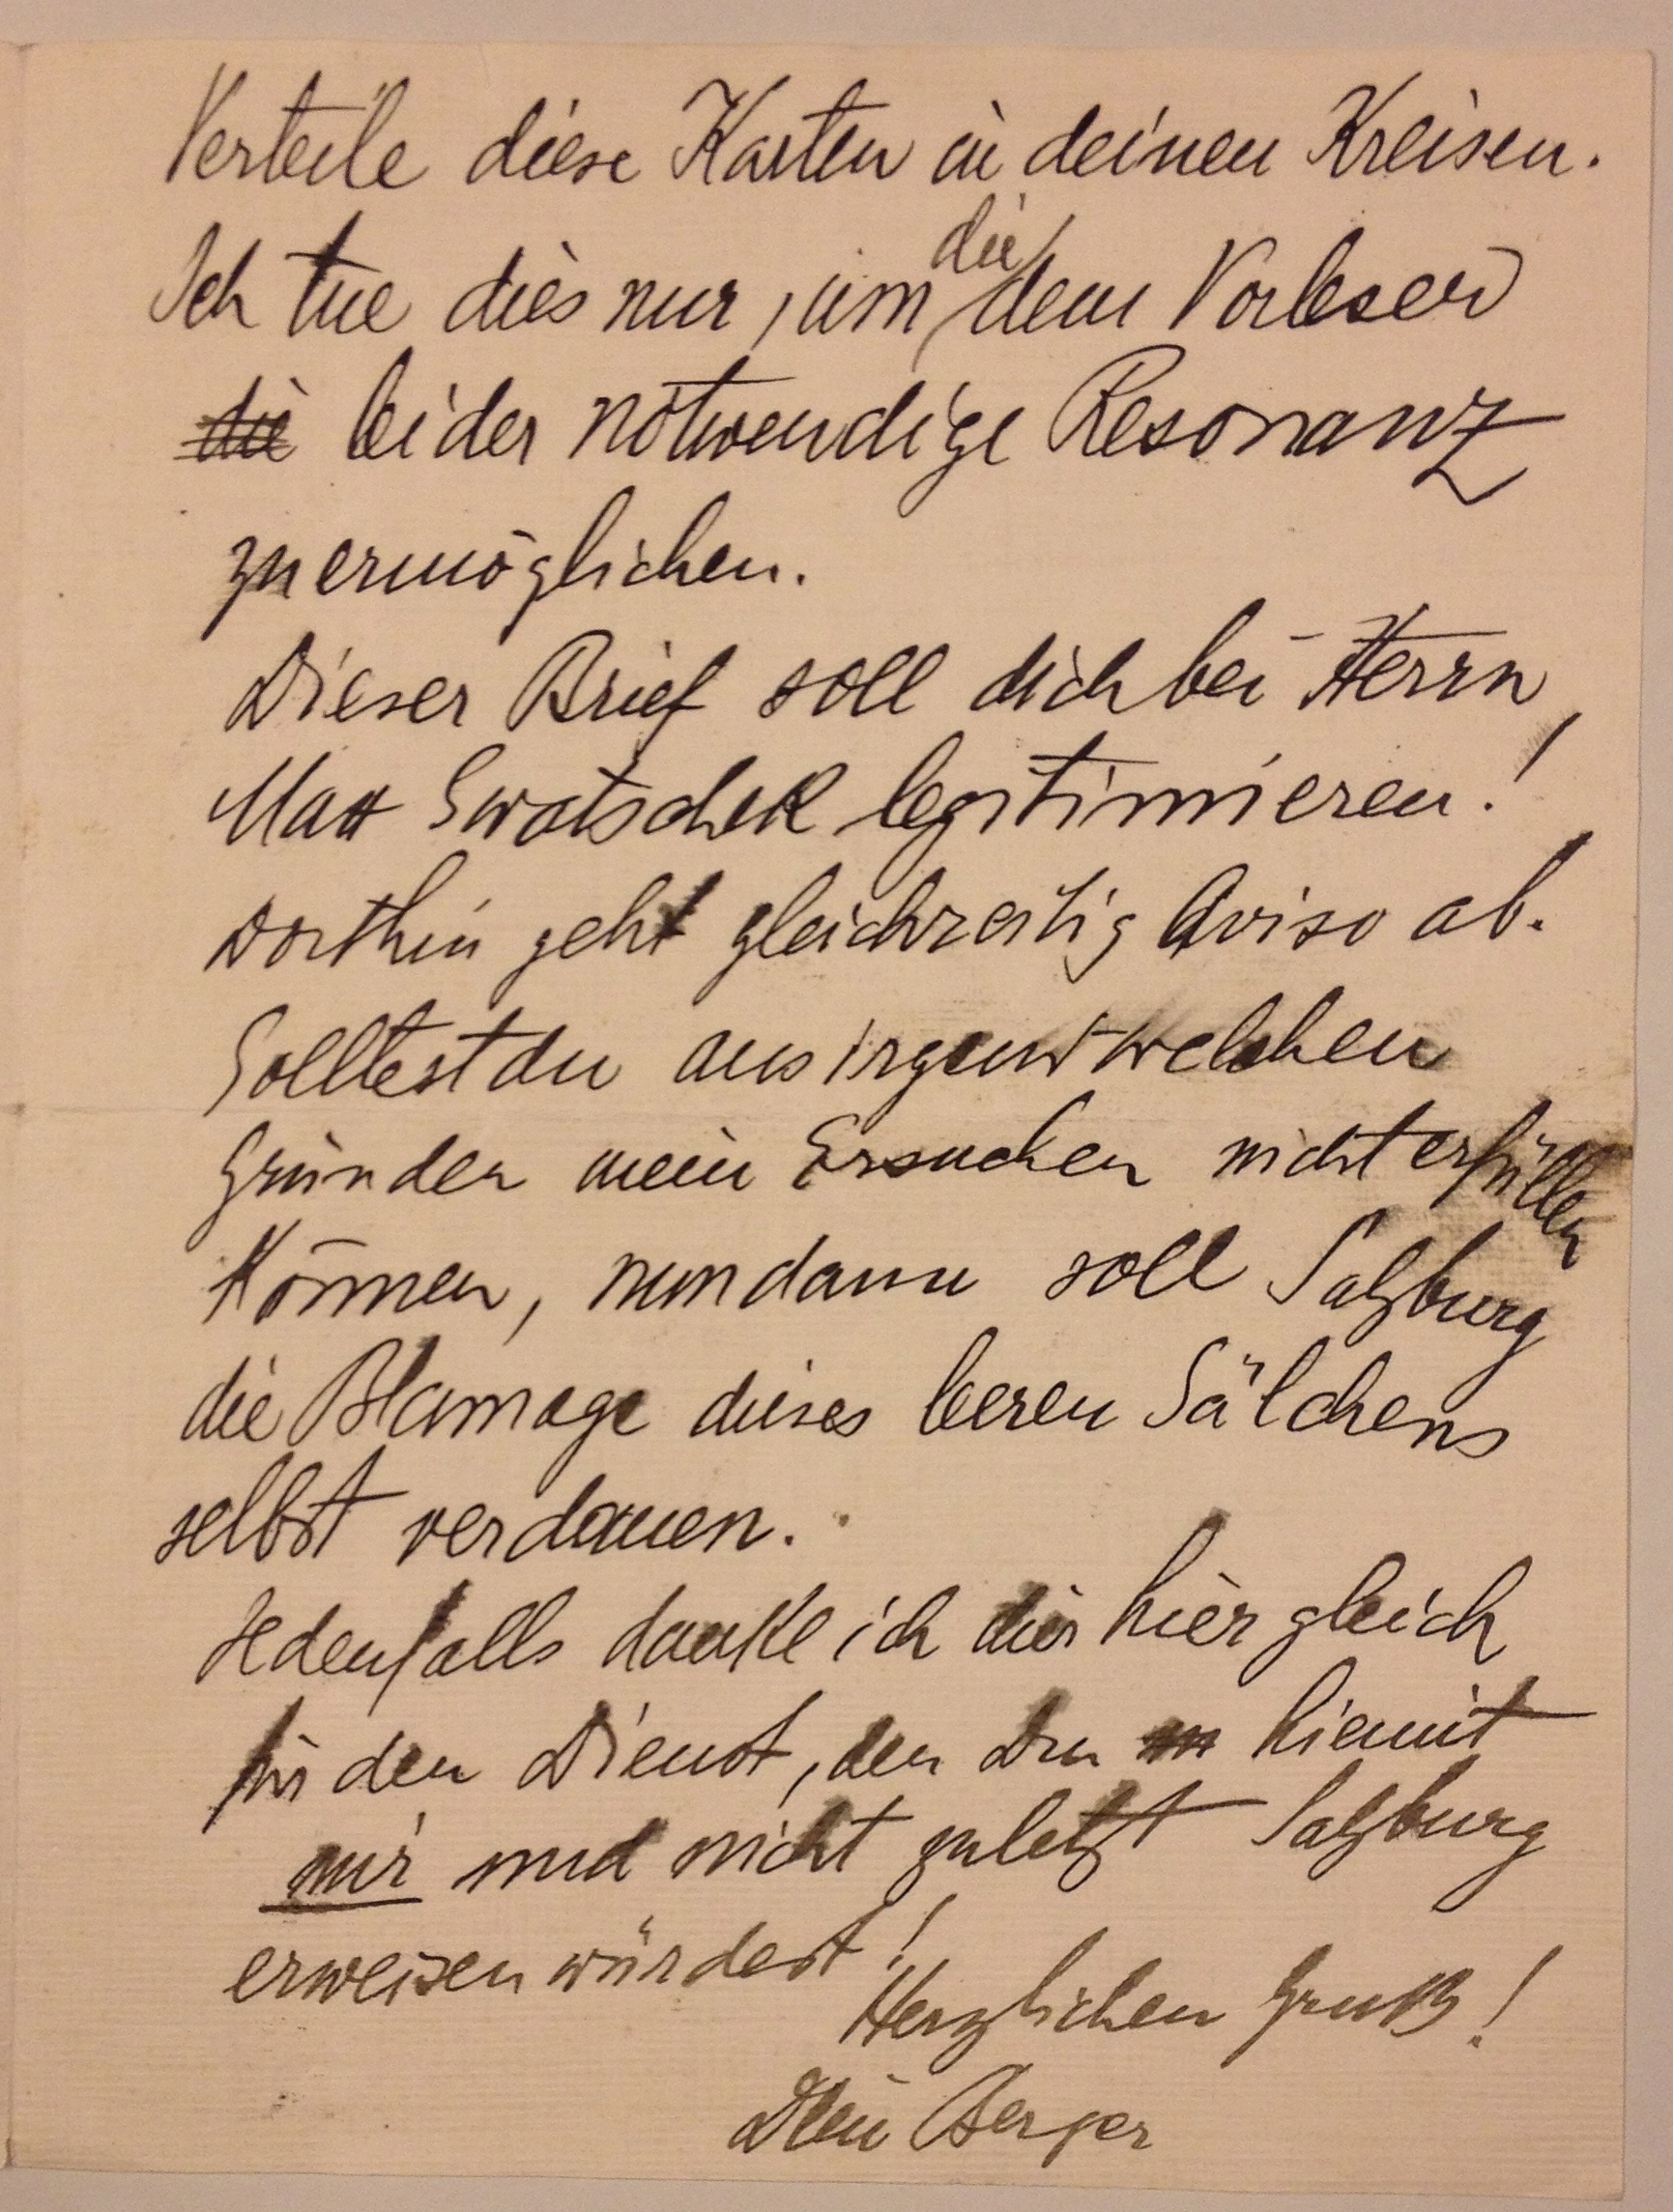 Verteile diese Karten in deinen Kreisen.
Ich tue dies nur, um die dem Vorleser
die leider notwendige Resonanz
zu ermöglichen.
Dieser Brief soll dich bei Herrn
Swatschek legitimieren!
Dorthin geht gleichzeitig Aviso ab.
Solltest du aus irgentwelchen
Gründen mein Ersuchen nicht erfüllen
können, nun dann soll Salzburg
die Blamage dieses leeren Sälchens
selbst verdauen.
Jedenfalls danke ich dir hier gleich
für den Dienst, den Du hiemit
mir und nicht zuletzt Salzburg
erweisen würdest!
Herzlichen Gruß!
Dein Berger